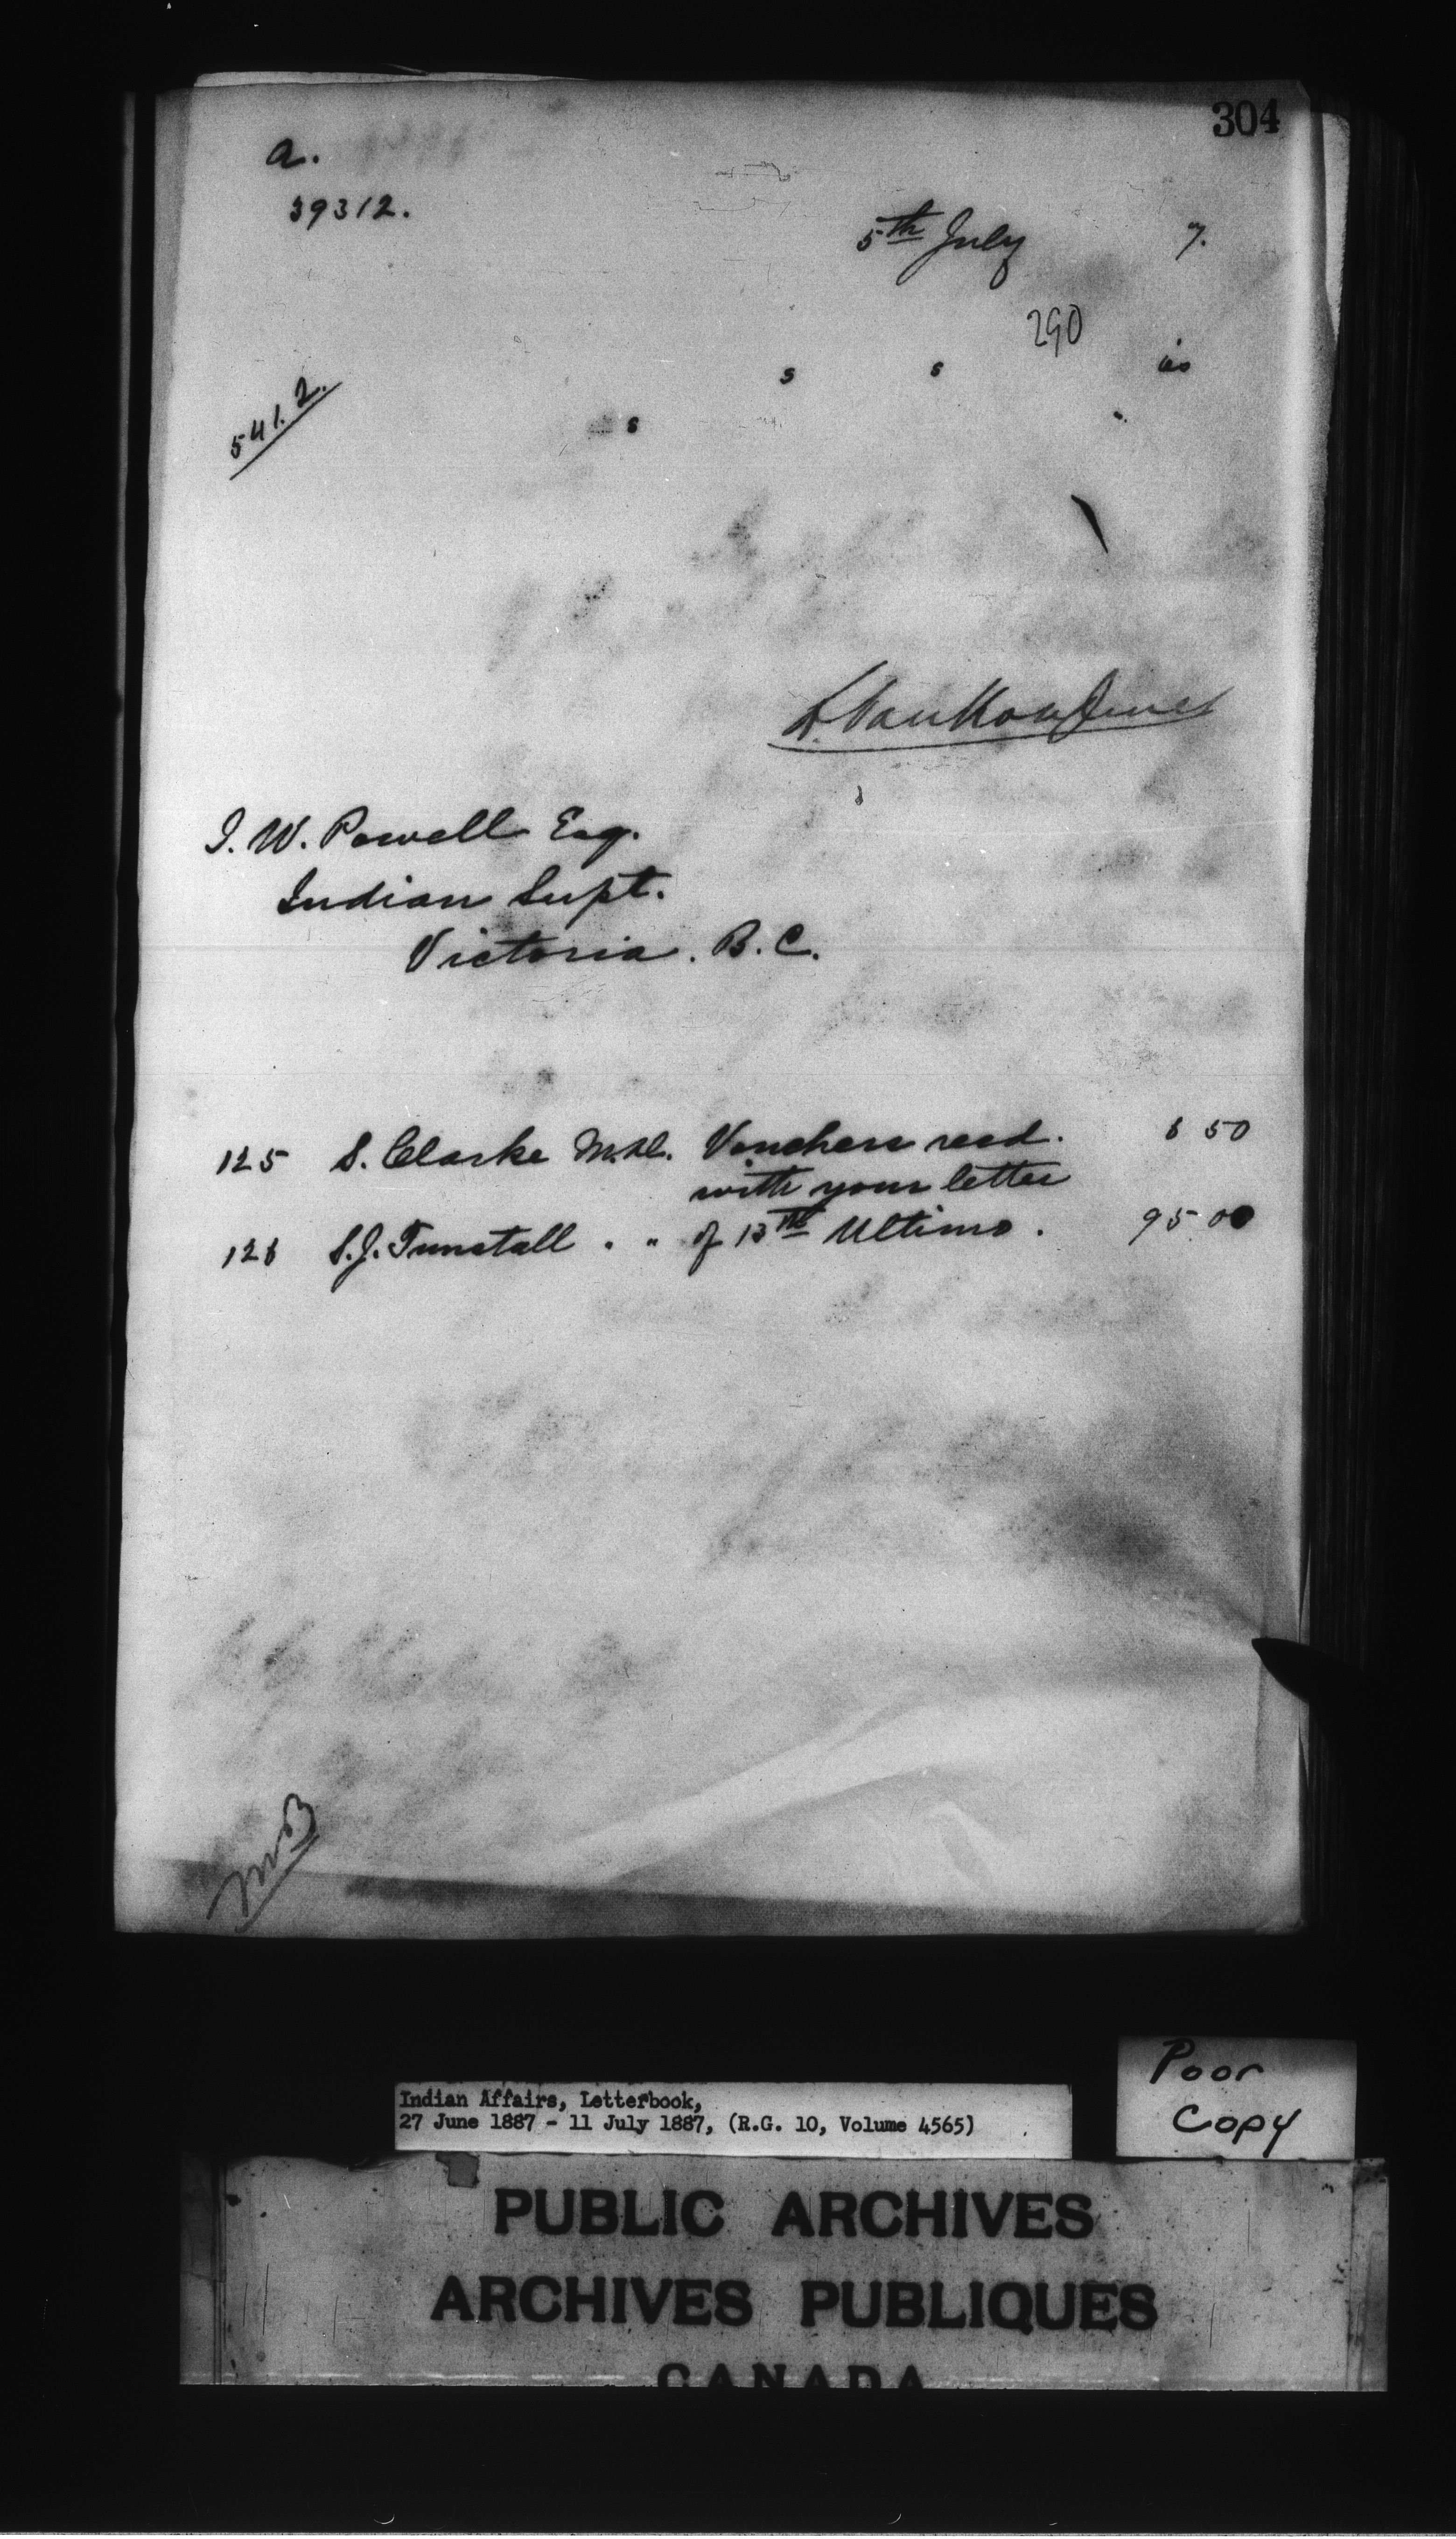 304
a.
39312.
5th July 7.
290
s s is
s
541.2.
L. VanKoughnet
I. W. Powell Esq.
Indian Supt.
Victoria. B.C.
125 S. Clarke M.D. Vouchers recd. 6 50
with your letter
126 S.J. Tunstall " " of 13th Ultimo. 95 00
MB
Poor
Copy
Indian Affairs, Letterbook,
27 June 1887 - 11 July 1887, (R.G. 10, Volume 4565)
PUBLIC ARCHIVES
ARCHIVES PUBLIQUES
CANADA